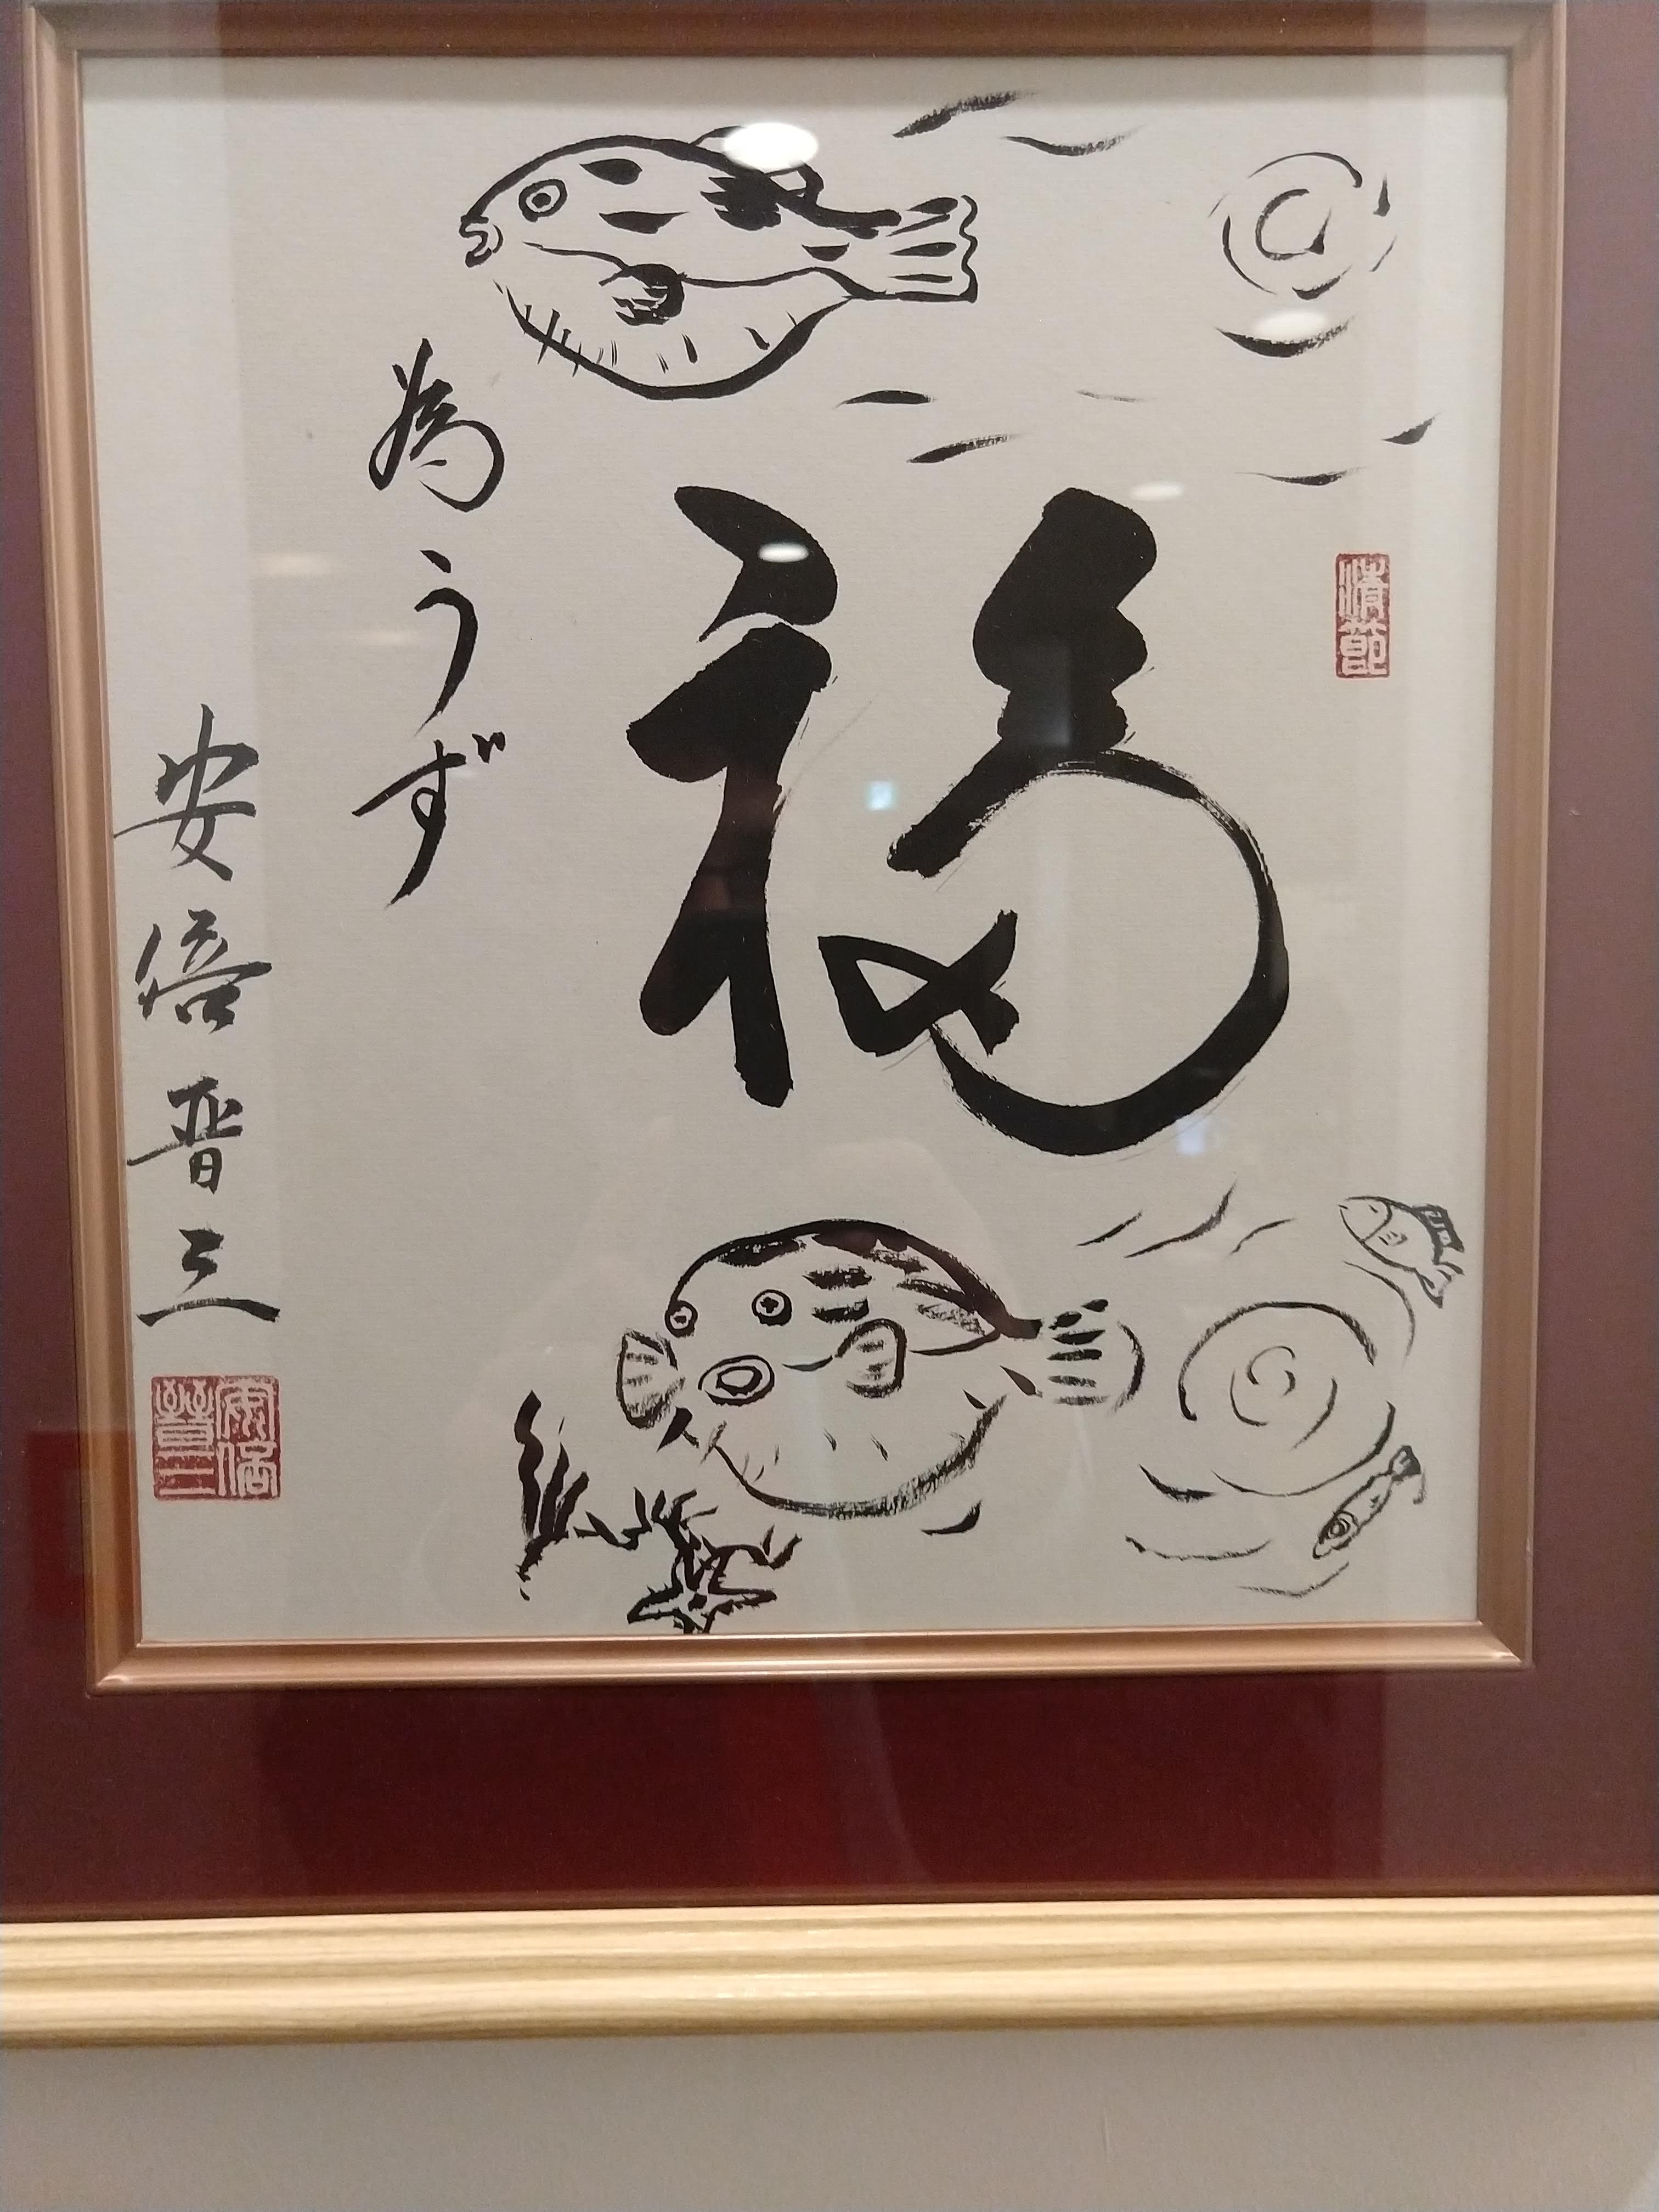 清節
福
為うず
安倍晋三
安倍晋三